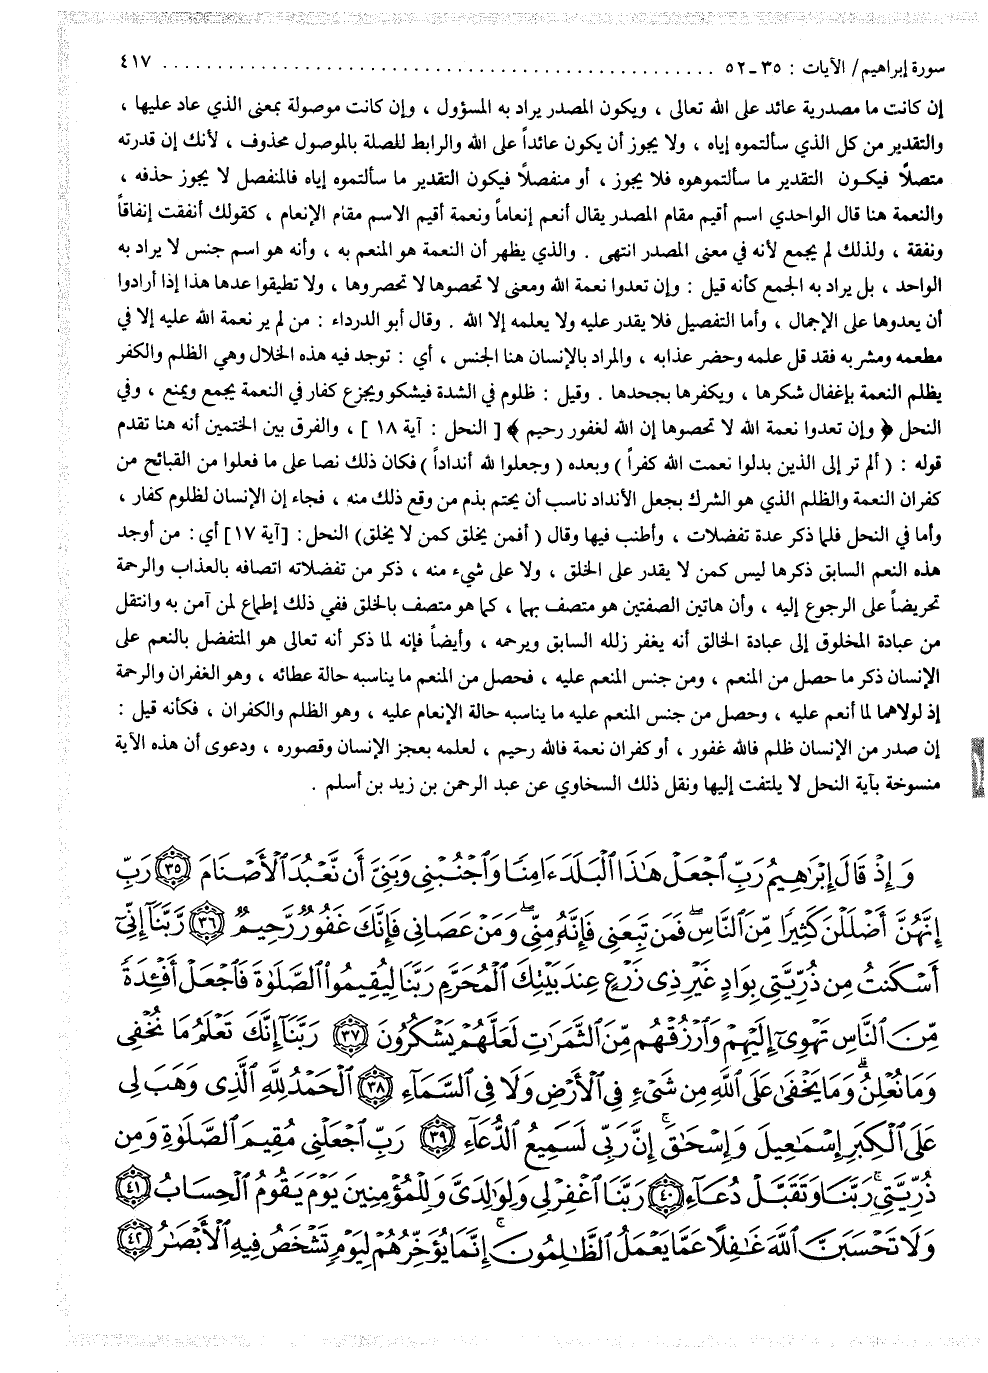 سورة إبراهيم/ الآيات : ٣٥-٥٢ ........................................................ ٤١٧
إن كانت ما مصدرية عائد على الله تعالى ، ويكون المصدر يراد به المسؤول ، وإن كانت موصولة بمعنى الذي عاد عليها ،
والتقدير من كل الذي سألتموه إياه ، ولا يجوز أن يكون عائداً على الله والرابط للصلة بالموصول محذوف ، لأنك إن قدرته
متصلًا فيكون التقدير ما سألتموهوه فلا يجوز ، أو منفصلًا فيكون التقدير ما سألتموه إياه فالمنفصل لا يجوز حذفه ،
والنعمة هنا قال الواحدي اسم أقيم مقام المصدر يقال أنعم إنعاماً ونعمة أقيم الاسم مقام الإنعام ، كقولك أنفقت إنفاقاً
ونفقة ، ولذلك لم يجمع لأنه في معنى المصدر انتهى . والذي يظهر أن النعمة هو المنعم به ، وأنه هو اسم جنس لا يراد به
الواحد ، بل يراد به الجمع كأنه قيل : وإن تعدوا نعمة الله ومعنى لا تحصوها لا تحصروها ، ولا تطيقوا عدها هذا إذا أرادوا
أن يعدوها على الإجمال ، وأما التفصيل فلا يقدر عليه ولا يعلمه إلا الله . وقال أبو الدرداء : من لم ير نعمة الله عليه إلا في
مطعمه ومشربه فقد قل علمه وحضر عذابه ، والمراد بالإنسان هنا الجنس ، أي : توجد فيه هذه الخلال وهي الظلم والكفر
يظلم النعمة بإغفال شكرها ، ويكفرها بجحدها . وقيل : ظلوم في الشدة فيشكو ويجزع كفار في النعمة يجمع ويمنع ، وفي
النحل ﴿ وإن تعدوا نعمة الله لا تحصوها إن الله لغفور رحيم ﴾ [ النحل : آية ١٨ ] ، والفرق بين الختمين أنه هنا تقدم
قوله : ( ألم تر إلى الذين بدلوا نعمت الله كفراً ) وبعده ( وجعلوا لله أنداداً ) فكان ذلك نصا على ما فعلوا من القبائح من
كفران النعمة والظلم الذي هو الشرك بجعل الأنداد ناسب أن يختم بذم من وقع ذلك منه ، فجاء إن الإنسان لظلوم كفار ،
وأما في النحل فلما ذكر عدة تفضلات ، وأطنب فيها وقال ( أفمن يخلق كمن لا يخلق) النحل : [آية ١٧] أي : من أوجد
هذه النعم السابق ذكرها ليس كمن لا يقدر على الخلق ، ولا على شيء منه ، ذكر من تفضلاته اتصافه بالعذاب والرحمة
تحريضاً على الرجوع إليه ، وأن هاتين الصفتين هو متصف بهما ، كما هو متصف بالخلق ففي ذلك إطماع لمن آمن به وانتقل
من عبادة المخلوق إلى عبادة الخالق أنه يغفر زلله السابق ويرحمه ، وأيضاً فإنه لما ذكر أنه تعالى هو المتفضل بالنعم على
الإنسان ذكر ما حصل من المنعم ، ومن جنس المنعم عليه ، فحصل من المنعم ما يناسبه حالة عطائه ، وهو الغفران والرحمة
إذ لولاهما لما أنعم عليه ، وحصل من جنس المنعم عليه ما يناسبه حالة الإنعام عليه ، وهو الظلم والكفران ، فكأنه قيل :
إن صدر من الإنسان ظلم فالله غفور ، أو كفران نعمة فالله رحيم ، لعلمه بعجز الإنسان وقصوره ، ودعوى أن هذه الآية
منسوخة بآية النحل لا يلتفت إليها ونقل ذلك السخاوي عن عبد الرحمن بن زيد بن أسلم .
وَإِذْ قَالَ إِبْرَاهِيمُ رَبِّ ٱجْعَلْ هَٰذَا ٱلْبَلَدَ ءَامِنًا وَٱجْنُبْنِي وَبَنِيَّ أَن نَّعْبُدَ ٱلْأَصْنَامَ ٣٥ رَبِّ
إِنَّهُنَّ أَضْلَلْنَ كَثِيرًا مِّنَ ٱلنَّاسِ فَمَن تَبِعَنِي فَإِنَّهُ مِنِّي وَمَنْ عَصَانِي فَإِنَّكَ غَفُورٌ رَّحِيمٌ ٣٦ رَّبَّنَآ إِنِّيٓ
أَسْكَنتُ مِن ذُرِّيَّتِي بِوَادٍ غَيْرِ ذِي زَرْعٍ عِندَ بَيْتِكَ ٱلْمُحَرَّمِ رَبَّنَا لِيُقِيمُوا۟ ٱلصَّلَوٰةَ فَٱجْعَلْ أَفْـِٔدَةً
مِّنَ ٱلنَّاسِ تَهْوِيٓ إِلَيْهِمْ وَٱرْزُقْهُم مِّنَ ٱلثَّمَرَٰتِ لَعَلَّهُمْ يَشْكُرُونَ ٣٧ رَبَّنَآ إِنَّكَ تَعْلَمُ مَا نُخْفِي
وَمَا نُعْلِنُ وَمَا يَخْفَىٰ عَلَى ٱللَّهِ مِن شَيْءٍ فِي ٱلْأَرْضِ وَلَا فِي ٱلسَّمَآءِ ٣٨ ٱلْحَمْدُ لِلَّهِ ٱلَّذِي وَهَبَ لِي
عَلَى ٱلْكِبَرِ إِسْمَٰعِيلَ وَإِسْحَٰقَ إِنَّ رَبِّي لَسَمِيعُ ٱلدُّعَآءِ ٣٩ رَبِّ ٱجْعَلْنِي مُقِيمَ ٱلصَّلَوٰةِ وَمِن
ذُرِّيَّتِي رَبَّنَا وَتَقَبَّلْ دُعَآءِ ٤٠ رَبَّنَا ٱغْفِرْ لِي وَلِوَٰلِدَيَّ وَلِلْمُؤْمِنِينَ يَوْمَ يَقُومُ ٱلْحِسَابُ ٤١
وَلَا تَحْسَبَنَّ ٱللَّهَ غَٰفِلًا عَمَّا يَعْمَلُ ٱلظَّٰلِمُونَ إِنَّمَا يُؤَخِّرُهُمْ لِيَوْمٍ تَشْخَصُ فِيهِ ٱلْأَبْصَٰرُ ٤٢